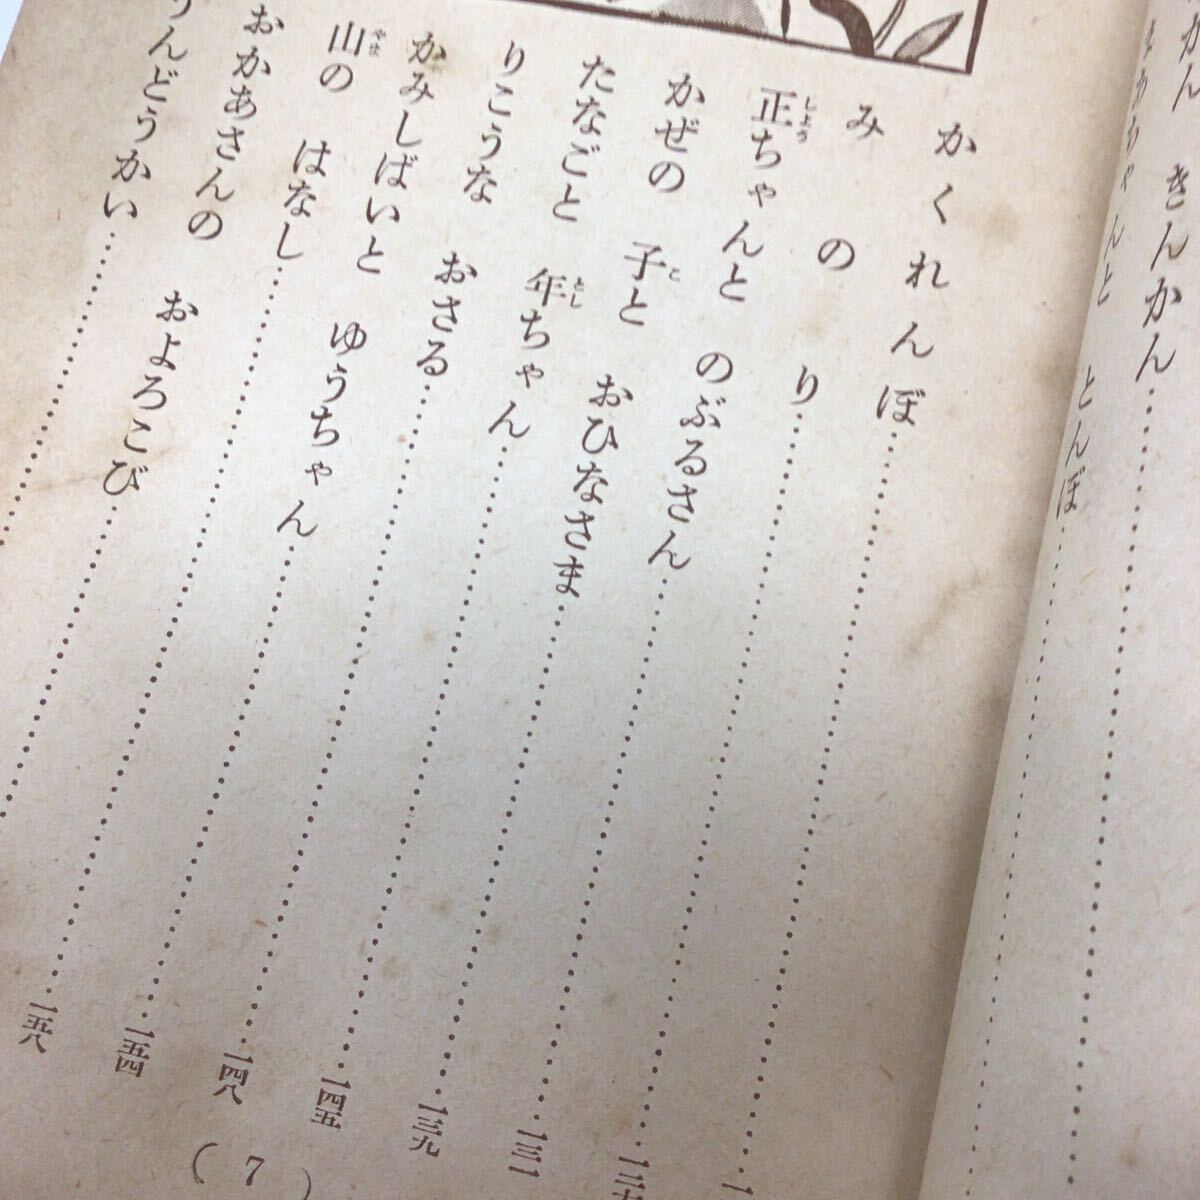 きんかん………
とんぼ………
かくれんぼ………
みのり………
正ちゃんと のぶるさん………一三一
かぜの 子と おひなさま………一三九
たなごと 年ちゃん………一四五
りこうな おさる………一四八
かみしばいと ゆうちゃん………一五四
山の はなし………一五八
おかあさんの およろこび………
うんどうかい………
( 7 )